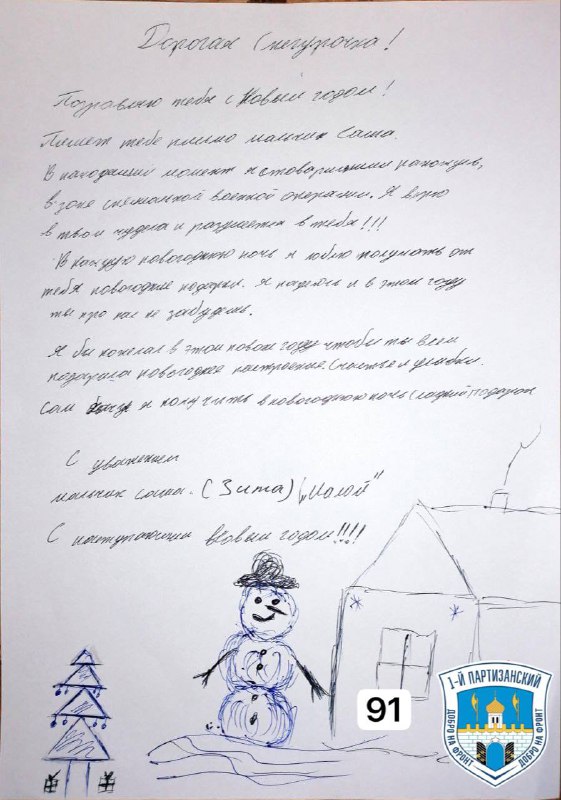 Дорогая Снегурочка!
Поздравляю тебя с Новый годом!
Пишет тебе письмо мальчик Саша.
В настоящий момент я с товарищами нахожусь,
в зоне специальной военной операции. Я верю
в твои чудеса и в тебя!!!
В каждую новогоднюю ночь я люблю получать от
тебя новогодние подарки. Я надеюсь и в этом году
ты про нас не забудешь.
Я бы пожелал в этом новом году чтобы ты всем
подарила новогоднее настроение. Счастье и улыбки.
Сам я получить в новогоднюю ночь сладкий подарок
С уважением
мальчик Саша. (Зима)
С наступающим Новым годом!!!!
91
1-Й ПАРТИЗАНСКИЙ
ДОБРО НА ФРОНТ
ДОБРО НА ФРОНТ